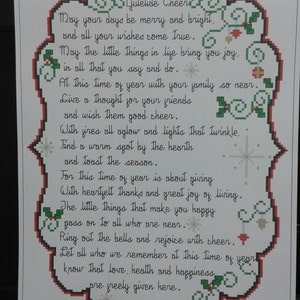 Yuletide Cheer
May your days be merry and bright,
and all your wishes come true.
May the little things in life bring you joy,
in all that you say and do.
At this time of year with your family so near.
Give a thought for your friends
and wish them good cheer.
With fires all aglow and lights that twinkle
And a warm spot by the hearth
and toast the season.
For this time of year is about giving
With heartfelt thanks and great joy of living.
The little things that make you happy
pass on to all who are near.
Ring out the bells and rejoice with cheer.
Let all who we remember at this time of year
know that love, health and happiness
are freely given here.